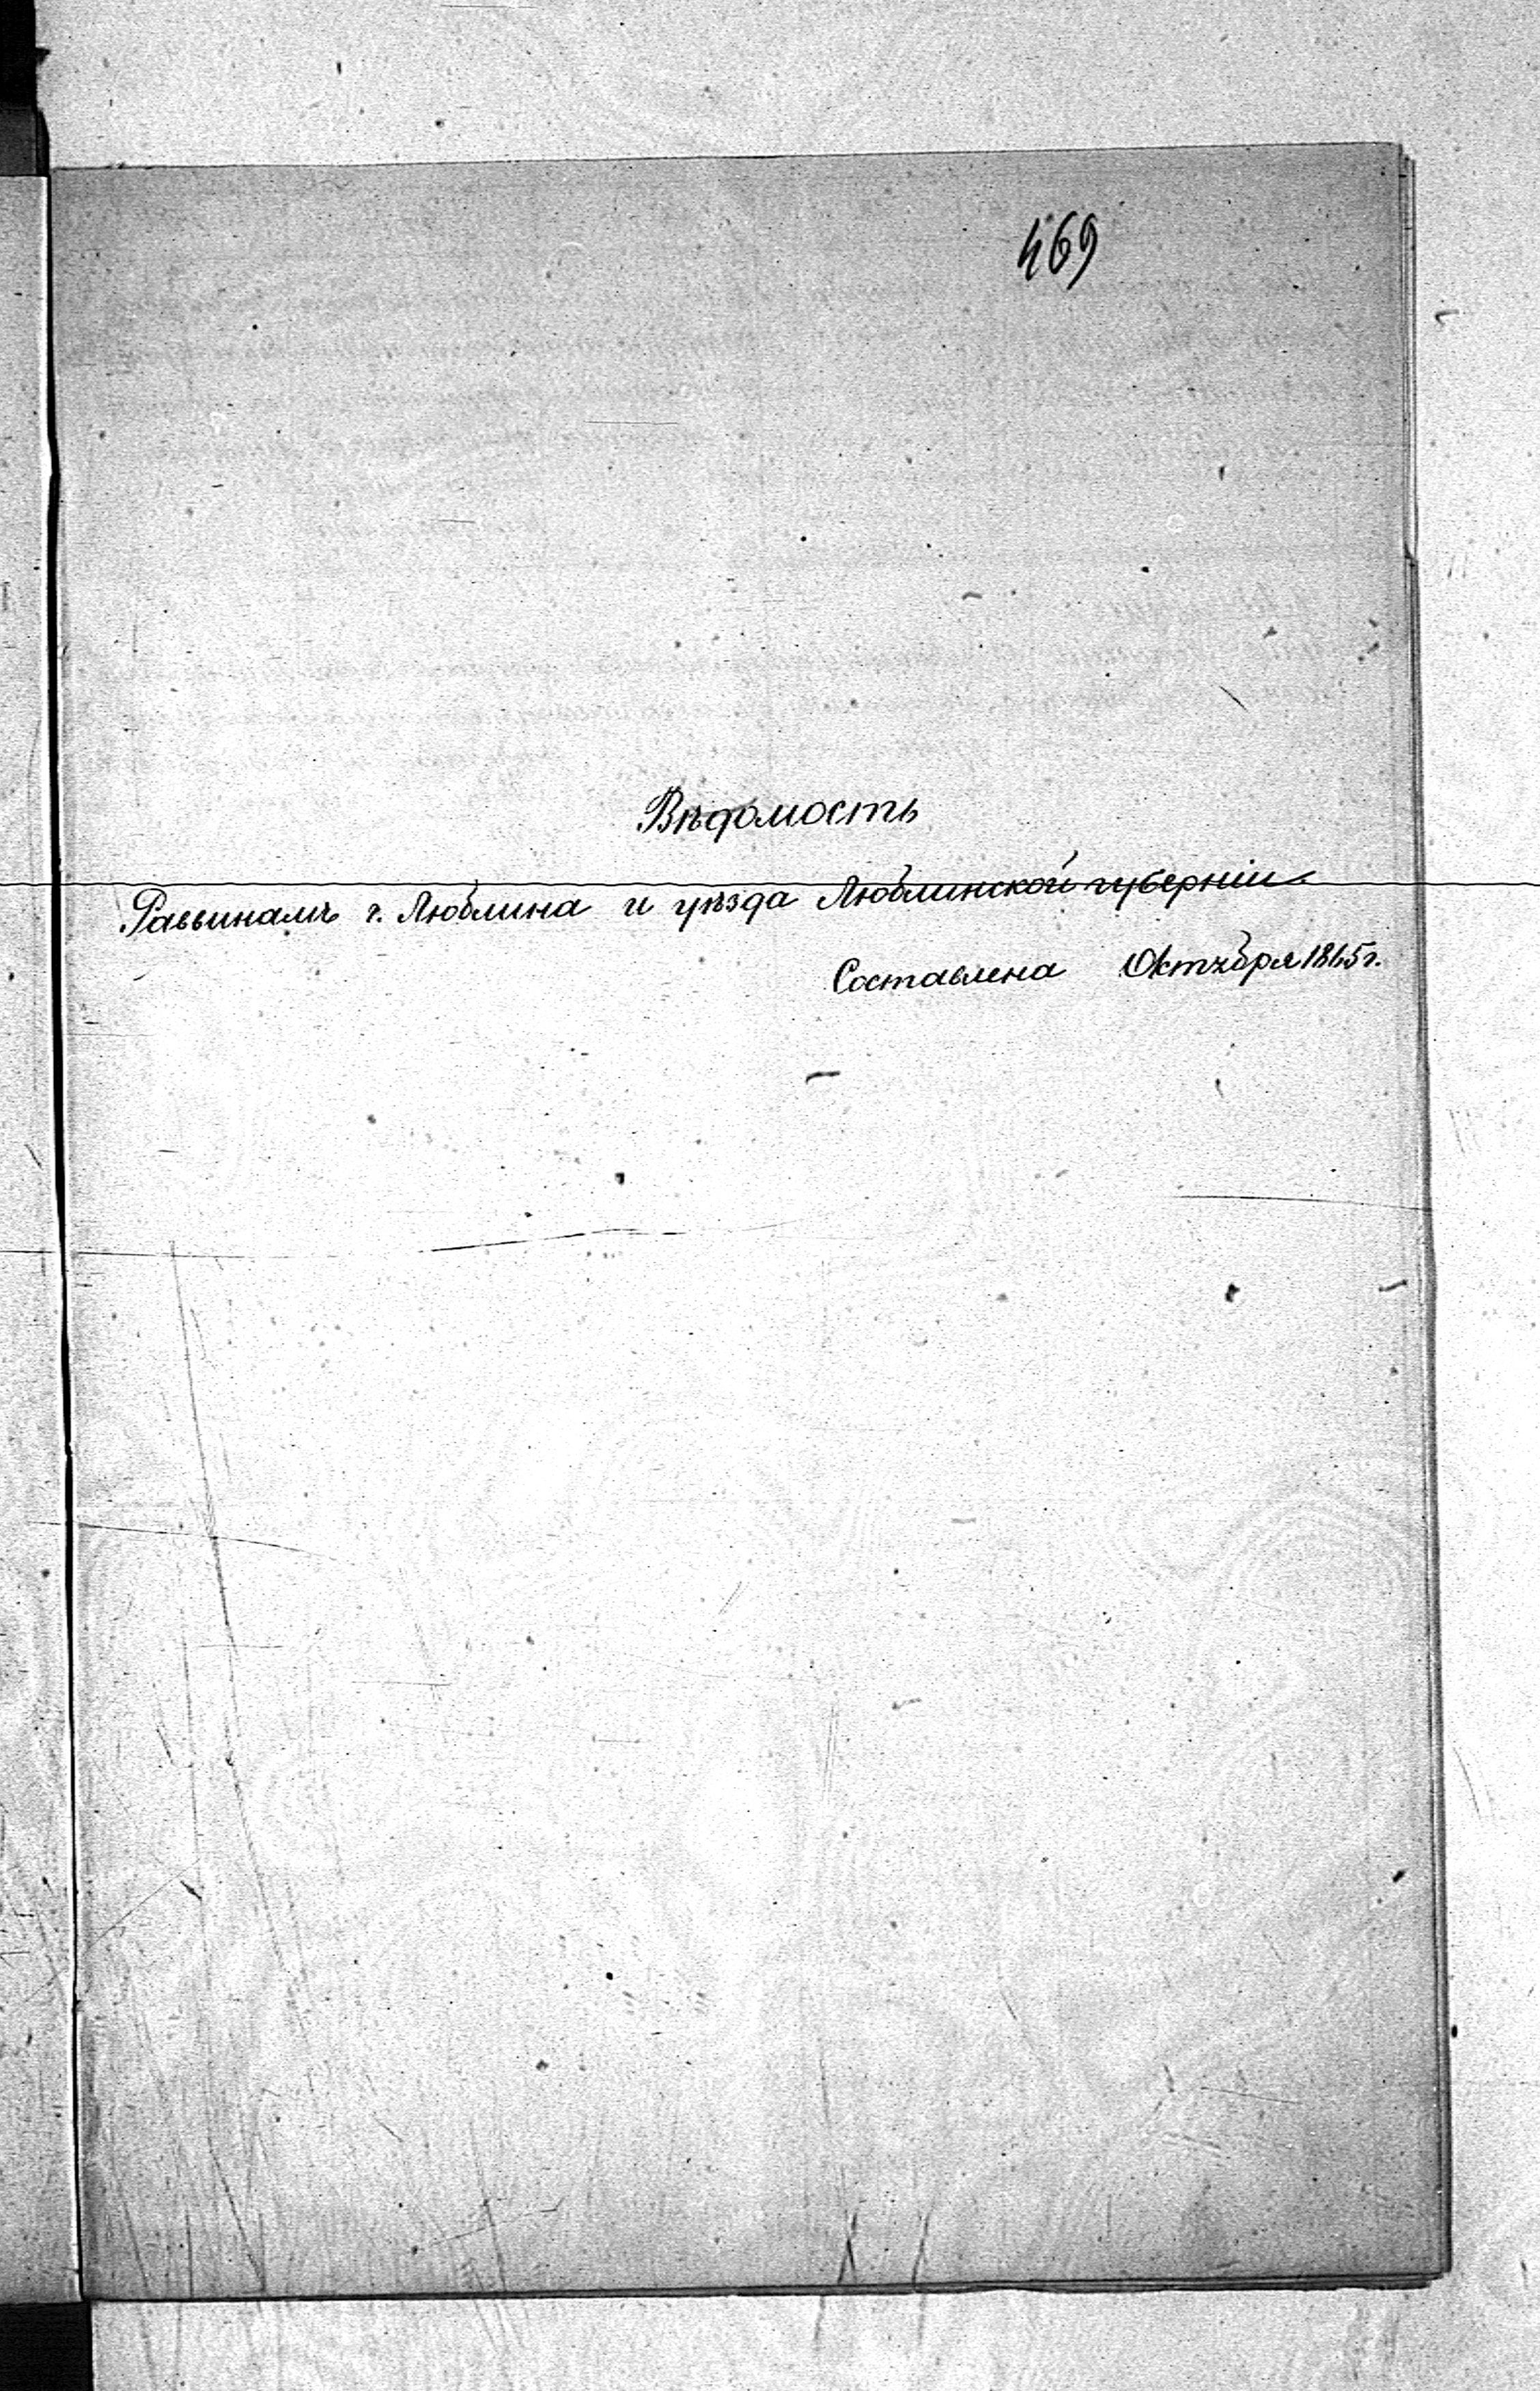 469
Вѣдомость
Раввинамъ г. Люблина и уѣзда Люблинской губерніи
Составлена Октября 1865 г.